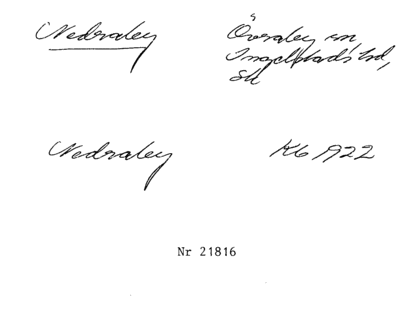 Nedraley Överaley sn,
Ingelstads hd,
Sk
Nedraley Kb 1922
Nr 21816